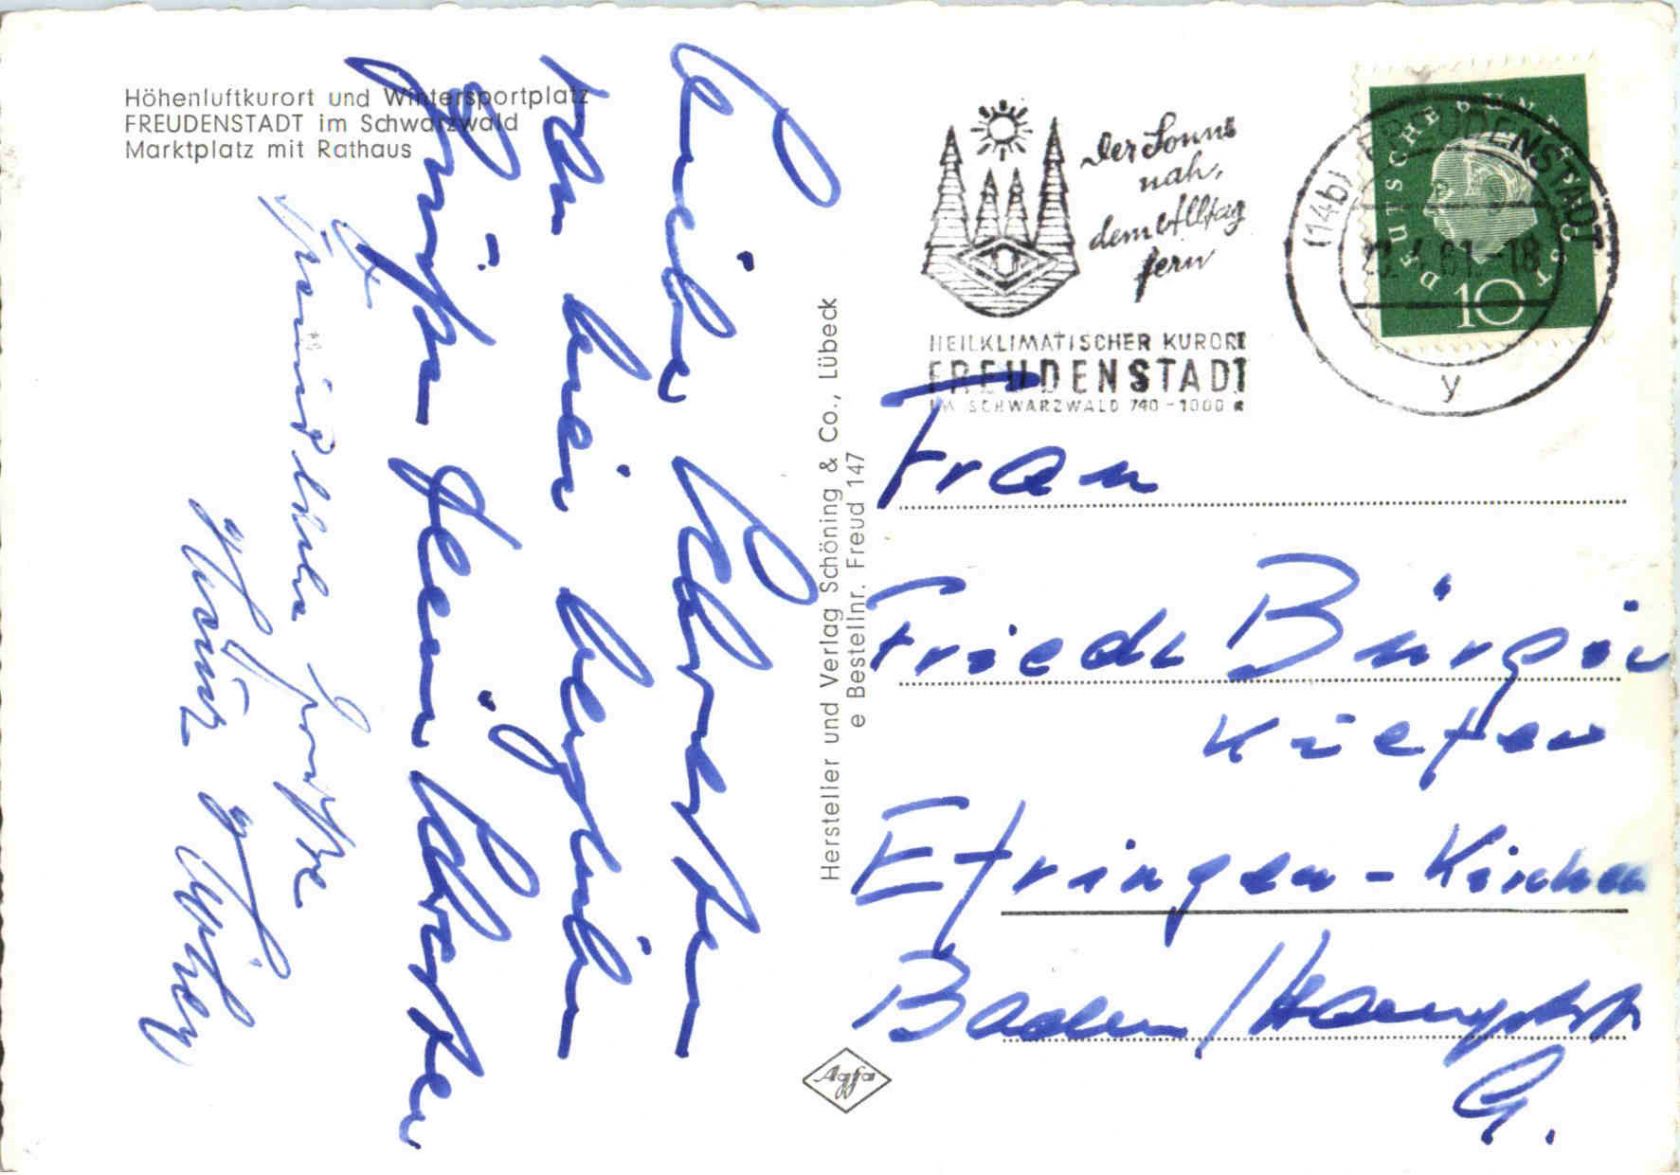 Höhenluftkurort und Wintersportplatz
FREUDENSTADT im Schwarzwald
Marktplatz mit Rathaus
Liebe Schwester
von hier herzliche
Grüße Dein Schwester
u.
freundliche Grüße
Heinz
Hersteller und Verlag Schöning & Co., Lübeck
e Bestellnr. Freud 147
Agfa
Der Sonne
nah,
dem Alltag
fern
HEILKLIMATISCHER KURORT
FREUDENSTADT
IM SCHWARZWALD 740-1000 m
(14b) FREUDENSTADT
61.-18
y
DEUTSCHE BUNDESPOST
10
Frau
Frieda Bürgin
Kiefer
Efringen-Kirchen
Baden / Hauptstr
G.